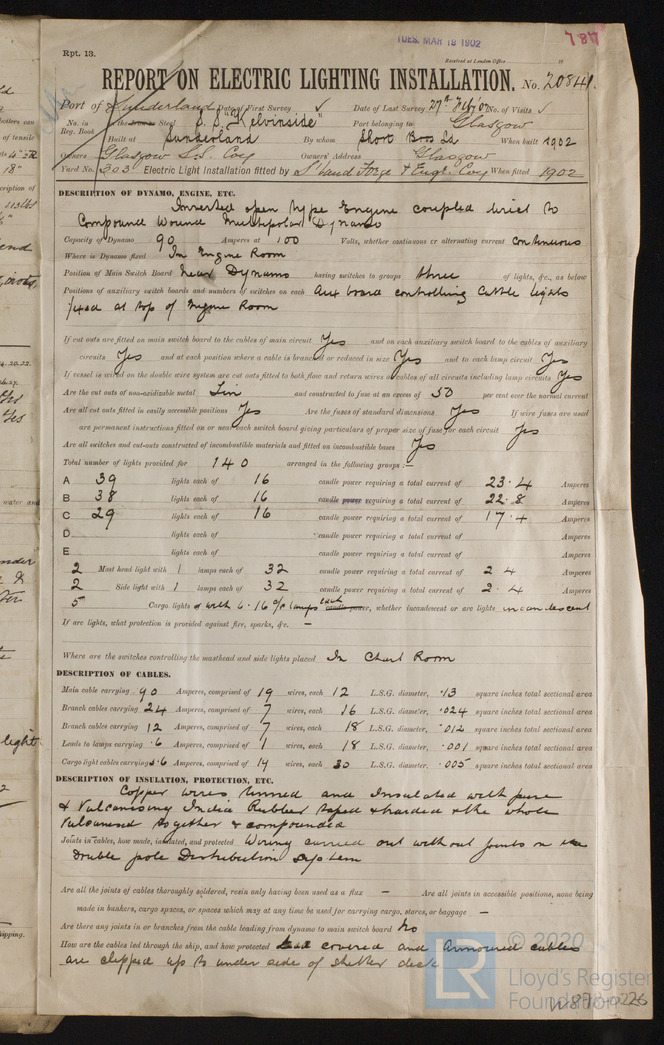 TUES. MAR 18 1902
787
Rpt. 13.
Received at London Office
18
REPORT ON ELECTRIC LIGHTING INSTALLATION. No. 20841.
Port of Sunderland Date of First Survey ✓ Date of Last Survey 27th Feb 02 No. of Visits ✓
No. in Reg. Book on the Iron or Steel S.S. "Kelvinside" Port belonging to Glasgow
Built at Sunderland By whom Short Bros Ld When built 1902
Owners Glasgow S.S. Coy Owners' Address Glasgow
Yard No. 303 Electric Light Installation fitted by S'land Forge & Engg. Coy When fitted 1902
DESCRIPTION OF DYNAMO, ENGINE, ETC.
Inverted open type Engine coupled direct to
Compound Wound Multipolar Dynamo
Capacity of Dynamo 90 Amperes at 100 Volts, whether continuous or alternating current continuous
Where is Dynamo fixed In Engine Room
Position of Main Switch Board Near Dynamo having switches to groups three of lights, &c., as below
Positions of auxiliary switch boards and numbers of switches on each Aux board controlling Cattle lights
fixed at top of Engine Room
If cut outs are fitted on main switch board to the cables of main circuit Yes and on each auxiliary switch board to the cables of auxiliary
circuits Yes and at each position where a cable is branched or reduced in size Yes and to each lamp circuit Yes
If vessel is wired on the double wire system are cut outs fitted to both flow and return wires or cables of all circuits including lamp circuits Yes
Are the cut outs of non-oxidizable metal Tin and constructed to fuse at an excess of 50 per cent over the normal current
Are all cut outs fitted in easily accessible positions Yes Are the fuses of standard dimensions Yes If wire fuses are used
are permanent instructions fitted on or near each switch board giving particulars of proper size of fuse for each circuit Yes
Are all switches and cut-outs constructed of incombustible materials and fitted on incombustible bases Yes
Total number of lights provided for 140 arranged in the following groups :—
A 39 lights each of 16 candle power requiring a total current of 23.4 Amperes
B 38 lights each of 16 candle power requiring a total current of 22.8 Amperes
C 29 lights each of 16 candle power requiring a total current of 17.4 Amperes
D lights each of candle power requiring a total current of Amperes
E lights each of candle power requiring a total current of Amperes
2 Mast head light with 1 lamps each of 32 candle power requiring a total current of 2 4 Amperes
2 Side light with 1 lamps each of 32 candle power requiring a total current of 2.4 Amperes
5 Cargo lights of with 6.16 c/p lamps each candle power, whether incandescent or arc lights incandescent
If arc lights, what protection is provided against fire, sparks, &c. —
Where are the switches controlling the masthead and side lights placed In Chart Room
DESCRIPTION OF CABLES.
Main cable carrying 90 Amperes, comprised of 19 wires, each 12 L.S.G. diameter, .13 square inches total sectional area
Branch cables carrying 24 Amperes, comprised of 7 wires, each 16 L.S.G. diameter, .024 square inches total sectional area
Branch cables carrying 12 Amperes, comprised of 7 wires, each 18 L.S.G. diameter, .012 square inches total sectional area
Leads to lamps carrying .6 Amperes, comprised of 1 wires, each 18 L.S.G. diameter, .001 square inches total sectional area
Cargo light cables carrying 3.6 Amperes, comprised of 14 wires, each 30 L.S.G. diameter, .005 square inches total sectional area
DESCRIPTION OF INSULATION, PROTECTION, ETC.
Copper wires tinned and Insulated with pure
& Vulcanising India Rubber taped & braided & the whole
Vulcanised together & compounded
Joints in cables, how made, insulated, and protected Wiring carried out without joints on the
Double pole Distribution System
Are all the joints of cables thoroughly soldered, resin only having been used as a flux — Are all joints in accessible positions, none being
made in bunkers, cargo spaces, or spaces which may at any time be used for carrying cargo, stores, or baggage —
Are there any joints in or branches from the cable leading from dynamo to main switch board No
How are the cables led through the ship, and how protected Lead covered and Armoured cables
are clipped up to under side of shelter deck
© 2020
LR
Lloyd's Register
Foundation